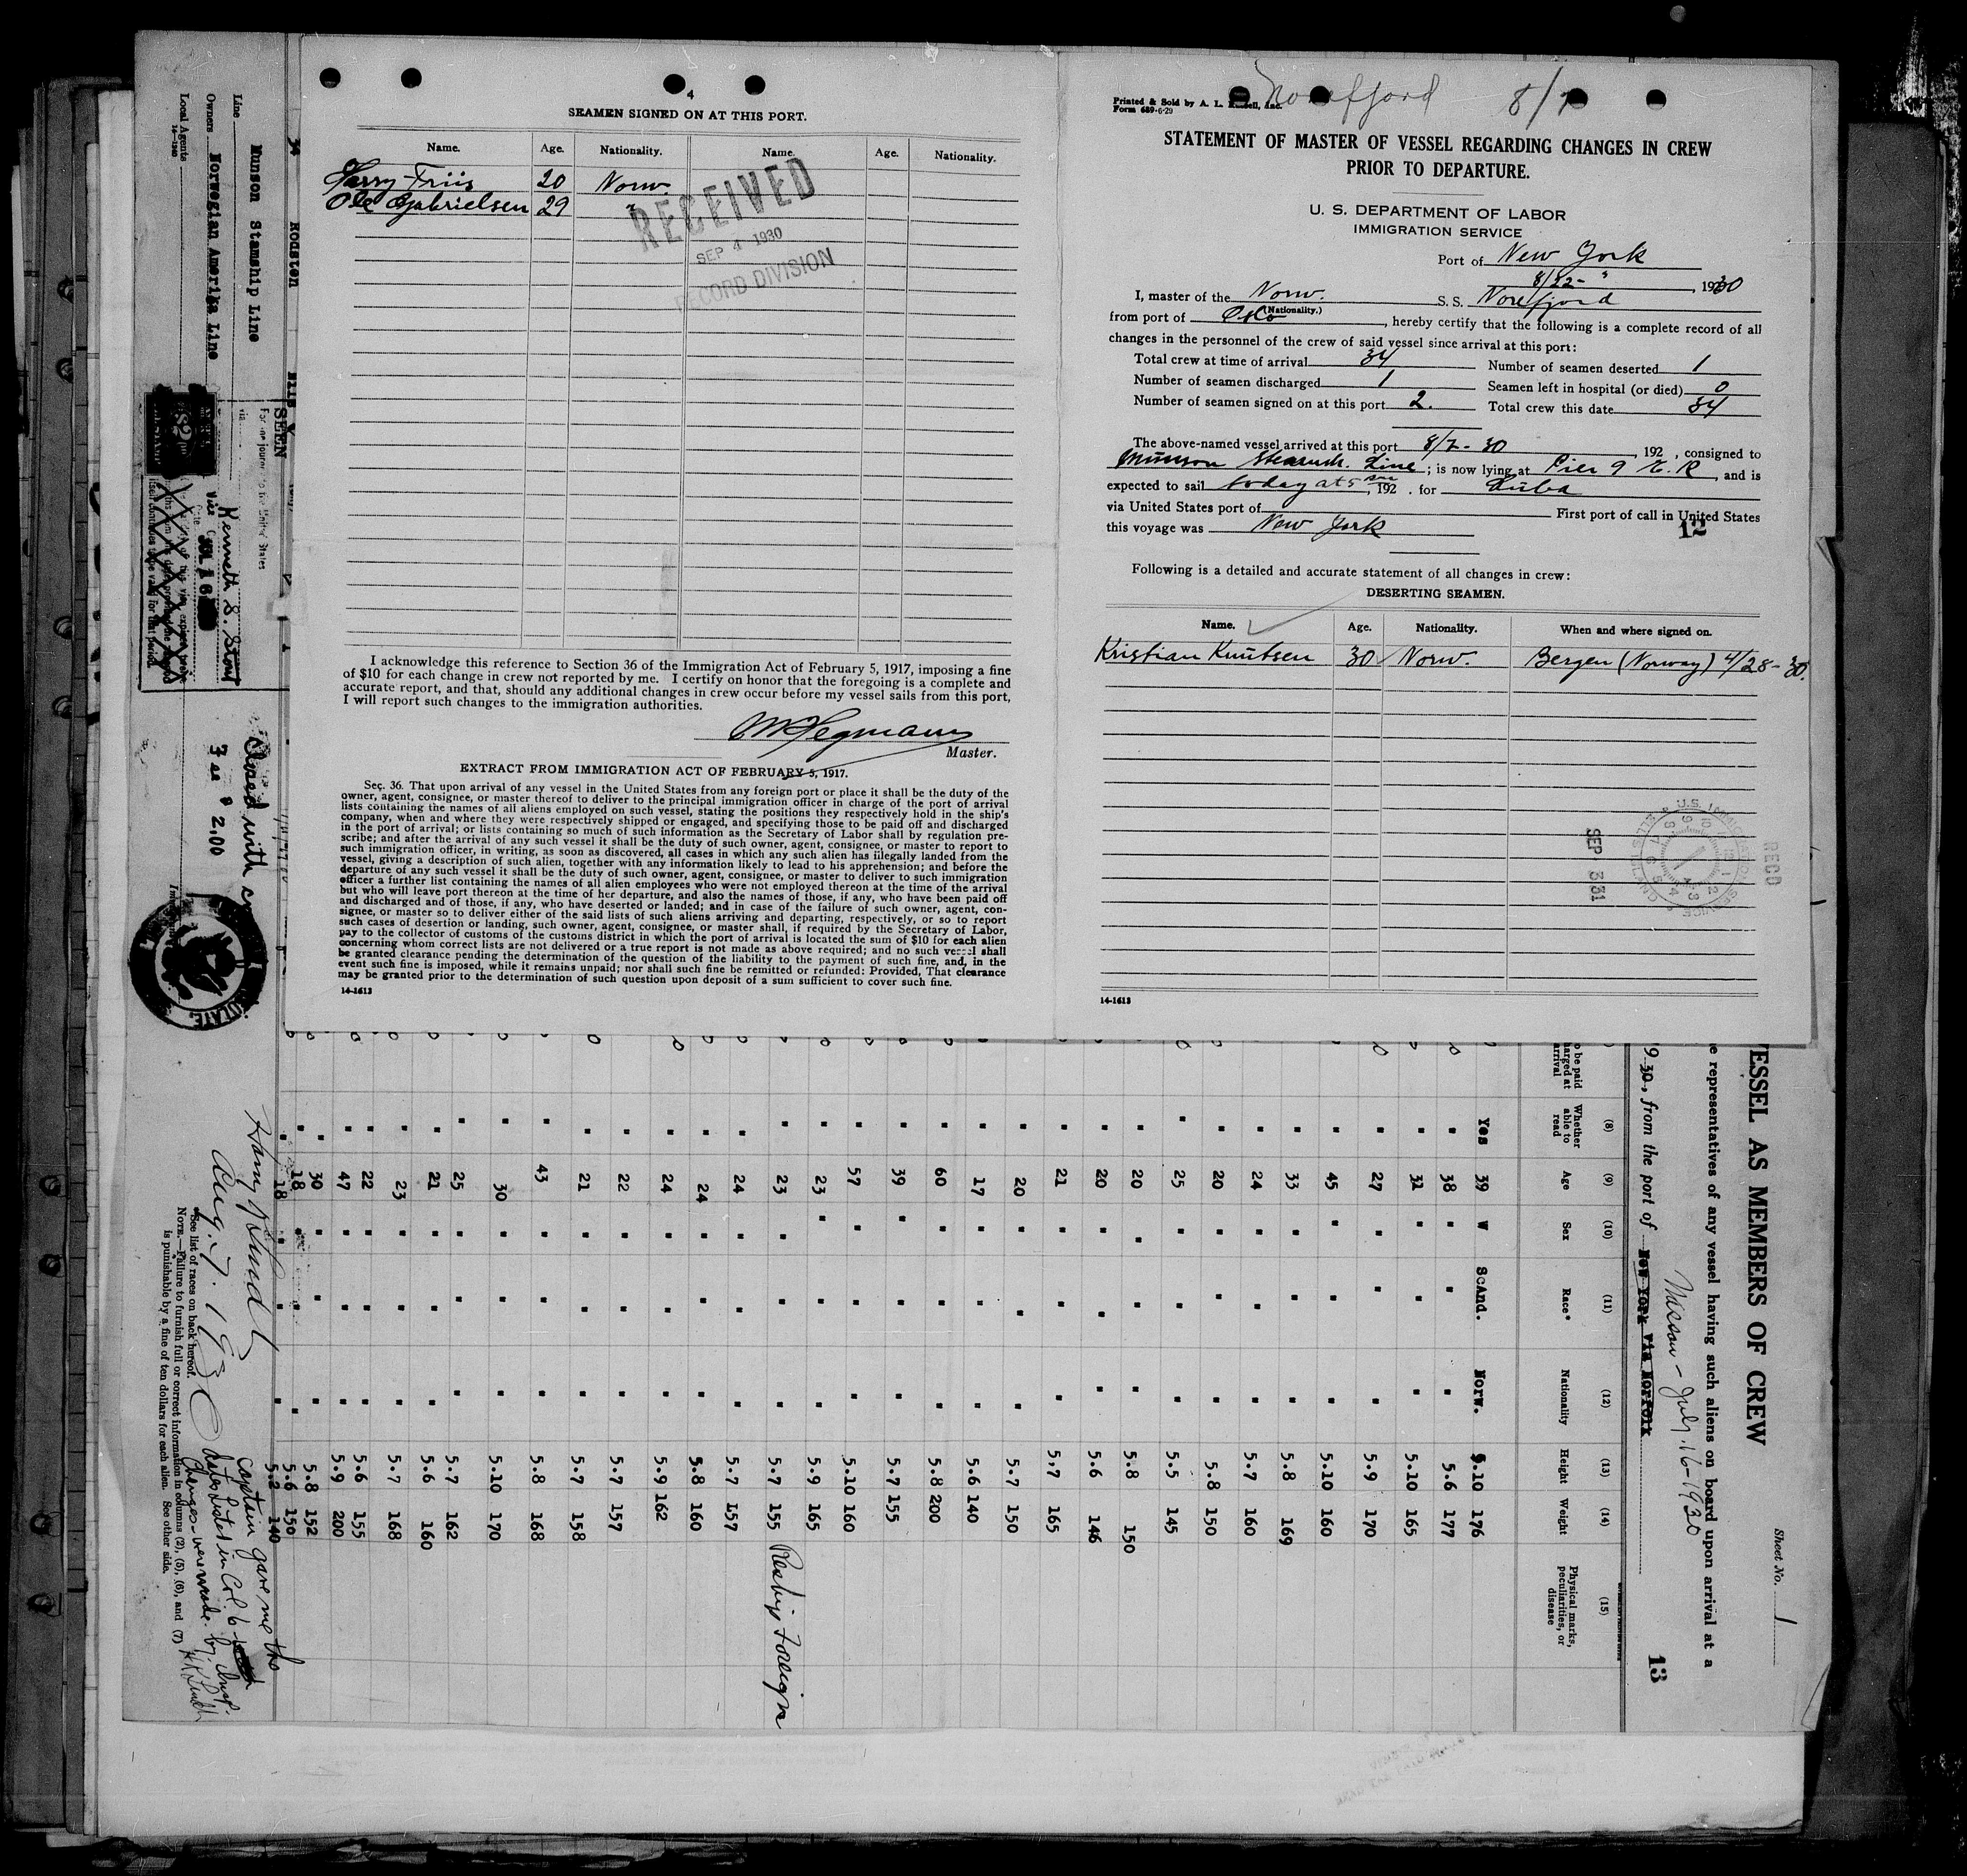 4
SEAMEN SIGNED ON AT THIS PORT.
Name. Age. Nationality. Name. Age. Nationality.
Harry Friis 20 Norw.
Ole Gabrielsen 29 "
RECEIVED
SEP 4 1930
RECORD DIVISION
I acknowledge this reference to Section 36 of the Immigration Act of February 5, 1917, imposing a fine
of $10 for each change in crew not reported by me. I certify on honor that the foregoing is a complete and
accurate report, and that, should any additional changes in crew occur before my vessel sails from this port,
I will report such changes to the immigration authorities.
Master.
EXTRACT FROM IMMIGRATION ACT OF FEBRUARY 5, 1917.
Sec. 36. That upon arrival of any vessel in the United States from any foreign port or place it shall be the duty of the
owner, agent, consignee, or master thereof to deliver to the principal immigration officer in charge of the port of arrival
lists containing the names of all aliens employed on such vessel, stating the positions they respectively hold in the ship's
company, when and where they were respectively shipped or engaged, and specifying those to be paid off and discharged
in the port of arrival; or lists containing so much of such information as the Secretary of Labor shall by regulation pre-
scribe; and after the arrival of any such vessel it shall be the duty of such owner, agent, consignee, or master to report to
such immigration officer, in writing, as soon as discovered, all cases in which any such alien has illegally landed from the
vessel, giving a description of such alien, together with any information likely to lead to his apprehension; and before the
departure of any such vessel it shall be the duty of such owner, agent, consignee, or master to deliver to such immigration
officer a further list containing the names of all alien employees who were not employed thereon at the time of the arrival
but who will leave port thereon at the time of her departure, and also the names of those, if any, who have been paid off
and discharged and of those, if any, who have deserted or landed; and in case of the failure of such owner, agent, con-
signee, or master so to deliver either of the said lists of such aliens arriving and departing, respectively, or so to report
such cases of desertion or landing, such owner, agent, consignee, or master shall, if required by the Secretary of Labor,
pay to the collector of customs of the customs district in which the port of arrival is located the sum of $10 for each alien
concerning whom correct lists are not delivered or a true report is not made as above required; and no such vessel shall
be granted clearance pending the determination of the question of the liability to the payment of such fine, and, in the
event such fine is imposed, while it remains unpaid; nor shall such fine be remitted or refunded: Provided, That clearance
may be granted prior to the determination of such question upon deposit of a sum sufficient to cover such fine.
14-1613
Norefjord 8/7
Printed & Sold by A. L. Inc.
Form 689-6-29
STATEMENT OF MASTER OF VESSEL REGARDING CHANGES IN CREW
PRIOR TO DEPARTURE.
U. S. DEPARTMENT OF LABOR
IMMIGRATION SERVICE
Port of New York
8/22- , 1930
I, master of the Norw. S. S. Norefjord
(Nationality.)
from port of Oslo, hereby certify that the following is a complete record of all
changes in the personnel of the crew of said vessel since arrival at this port:
Total crew at time of arrival 34 Number of seamen deserted 1
Number of seamen discharged 1 Seamen left in hospital (or died) 0
Number of seamen signed on at this port 2. Total crew this date 34
The above-named vessel arrived at this port 8/7-30, 192 , consigned to
Munson Steamsh. Line; is now lying at Pier 9 E.R, and is
expected to sail today at 5 , 192 . for Cuba
via United States port of First port of call in United States
this voyage was New York
12
Following is a detailed and accurate statement of all changes in crew:
DESERTING SEAMEN.
Name. Age. Nationality. When and where signed on.
Kristian Knutsen 30 Norw. Bergen (Norway) 4/28-30.
RECD
SEP 3 31
U.S. IMMIGRATION SERVICE
14-1613
Line Munson Stamship Line
Owners Norwegian Amerika Line
Local Agents
14-1940
SEEN
For the journey to the United States
via
Kenneth S. Stout
Fee $ 2.00
VESSEL AS MEMBERS OF CREW
Sheet No. 1
representatives of any vessel having such aliens on board upon arrival at a
1930, from the port of New York via Norfolk
Nassau - July 16-1930
13
to be paid
charged at
arrival
(8) Whether able to read
(9) Age
(10) Sex
(11) Race*
(12) Nationality
(13) Height
(14) Weight
(15) Physical marks, peculiarities, or disease
Yes 39 W Scand. Norw. 5.10 176
" 38 " " " 5.6 177
" 31 " " " 5.10 165
" 27 " " " 5.9 170
" 45 " " " 5.10 160
" 33 " " " 5.8 169
" 24 " " " 5.7 160
" 20 " " " 5.8 150
" 25 " " " 5.5 145
" 20 " " " 5.8 150
" 20 " " " 5.6 146
" 21 " " " 5.7 165
" 20 " " " 5.7 150
" 17 " " " 5.6 140
" 60 " " " 5.8 200
" 39 " " " 5.7 155
" 57 " " " 5.10 160
" 23 " " " 5.9 165
" 23 " " " 5.7 155 Reship Foreign
" 24 " " " 5.7 157
" 24 " " " 5.8 160
" 24 " " " 5.9 162
" 22 " " " 5.7 157
" 21 " " " 5.7 158
" 43 " " " 5.8 168
" 30 " " " 5.10 170
" 25 " " " 5.7 162
" 21 " " " 5.6 160
" 23 " " " 5.7 168
" 22 " " " 5.6 155
" 47 " " " 5.9 200
" 30 " " " 5.8 152
" 18 " " " 5.6 150
" 18 " " " 5.2 140
Aug. 7. 1930
Captain gave me the
dates listed in Col. 6
Changes were made by Insp.
*See list of races on back hereof.
NOTE.—Failure to furnish full or correct information in columns (2), (5), (6), and (7)
is punishable by a fine of ten dollars for each alien. See other side.